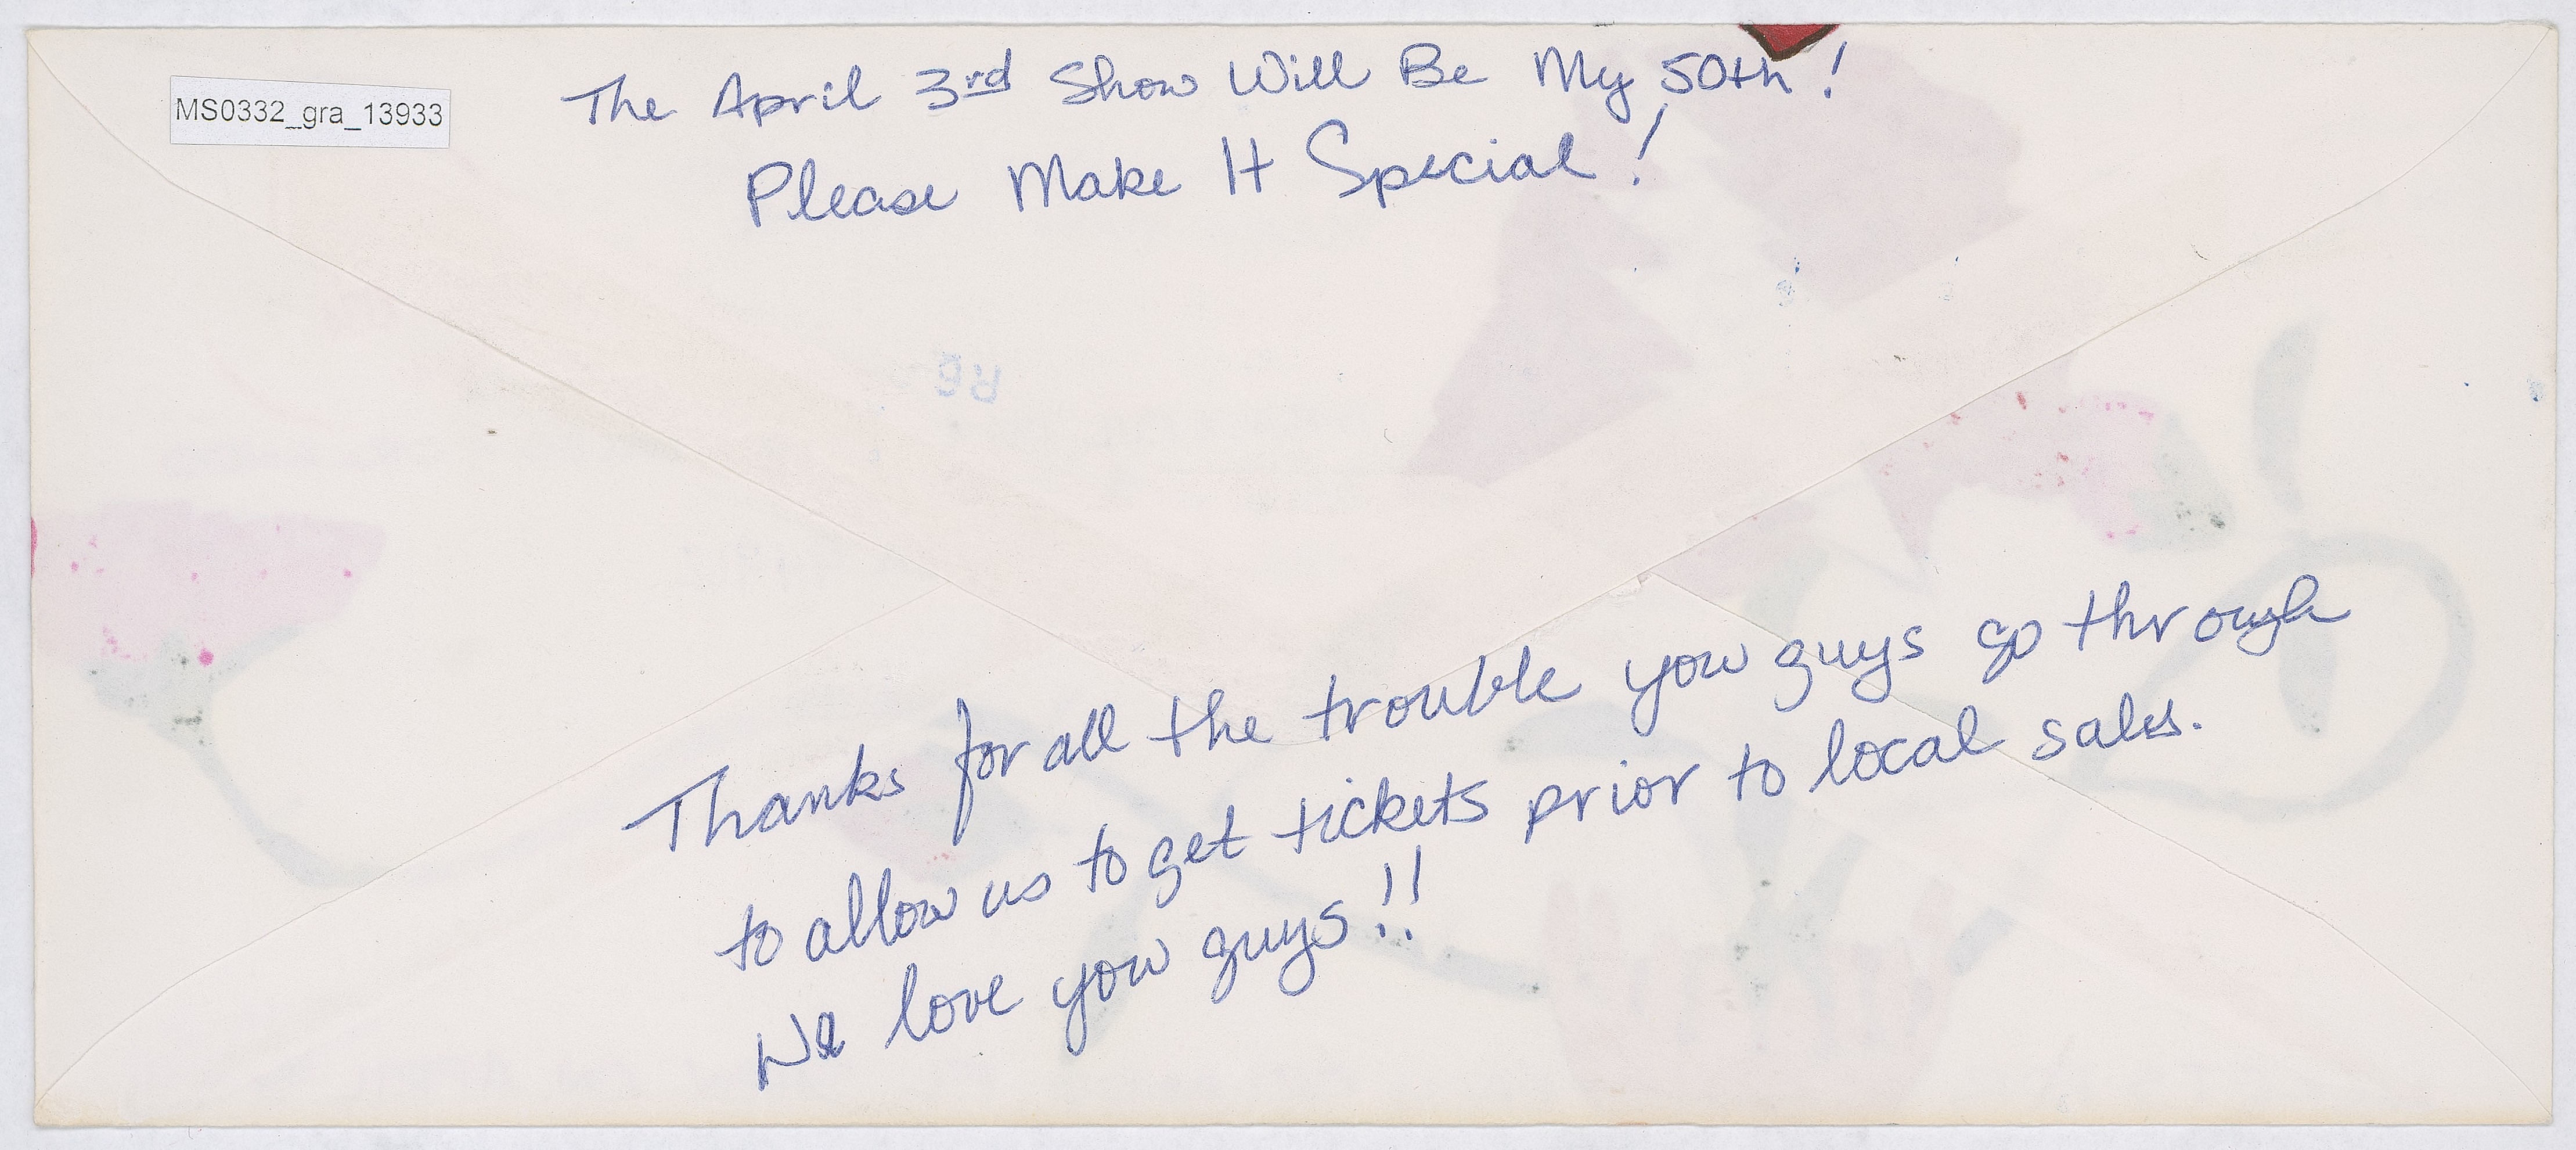 MS0332_gra_13933
The April 3rd Show Will Be My 50th!
Please Make It Special!
Thanks for all the trouble you guys go through
to allow us to get tickets prior to local sales.
We love you guys!!